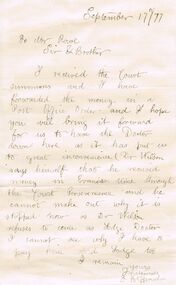 September 17/77
To Mr Bone
Sir & Brother
I received the Court
summons and I have
forwarded the money in a
Post Office Order and I hope
you will bring it forward
for us to have the Doctor
down here, as it has put us
to great inconvenience Dr Wilson
says himself that he received
money in through
the Court Perseverance and he
cannot make out why it is
stopped now as Dr Wilson
refuses to come as Lodge Doctor
I cannot see why I have to
pay him and Lodge too
I remain
yours
fraternally